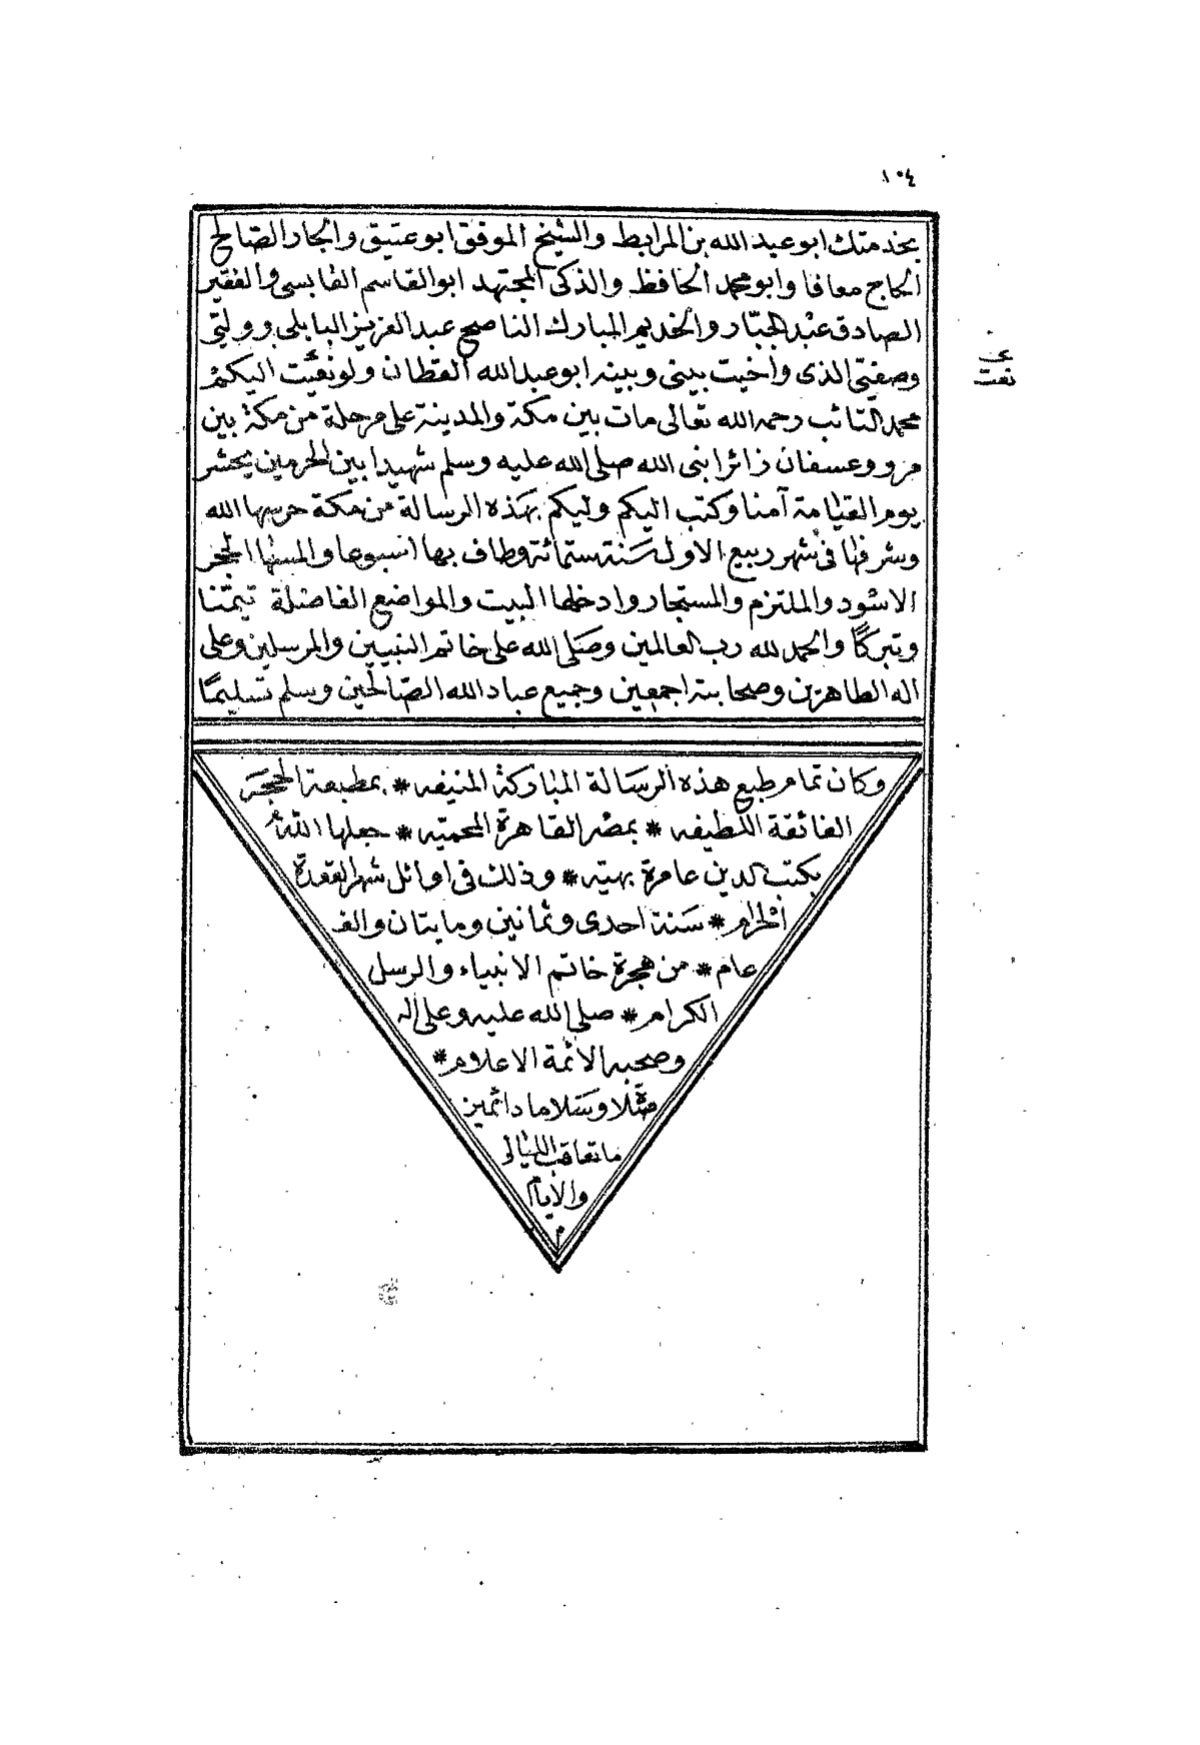 ١٠٤
بخدمتك ابو عبد الله بن المرابط والشيخ الموفق ابو عتيق والجار الصالح
الحاج معافا وابو محمد الحافظ والذكى المجتهد ابو القاسم القابسى والفقير
الصادق عبد الجبار والخديم المبارك الناصح عبد العزيز البابلى وولتى
وصفيتى الذى واخيت بينى وبينه ابو عبد الله القطان ولو نعيت اليكم
نعت
محمد التائب رحمه الله تعالى مات بين مكة والمدينة على مرحلة من مكة بين
مرو وعسفان زائرا بنى الله صلى الله عليه وسلم شهيدا بين الحرمين يحشر
يوم القيامة آمنا وكتب اليكم وليكم بهذه الرسالة من مكة حرسها الله
وشرفها فى شهر ربيع الاول سنة ستمائة وطاف بها اسبوعا والمسها الحجر
الاسود والملتزم والمستجار وادخلها البيت والمواضع الفاضلة تيمنا
وتبركا والحمد لله رب العالمين وصلى الله على خاتم النبيين والمرسلين وعلى
اله الطاهرين وصحابته اجمعين وجميع عباد الله الصالحين وسلم تسليما
وكان تمام طبع هذه الرسالة المباركة المنيفه * بمطبعة الحجر
الفائقة اللطيفه * بمصر القاهرة المحميه * جعلها الله
بكتب الدين عامرة بهيه * وذلك فى اوائل شهر القعدة
الحرام * سنة احدى وثمانين ومايتان والف
عام * من هجرة خاتم الانبياء والرسل
الكرام * صلى الله عليه وعلى اله
وصحبه الائمة الاعلام *
صلاة وسلاما دائمين
ما تعاقب الليالى
والايام
م